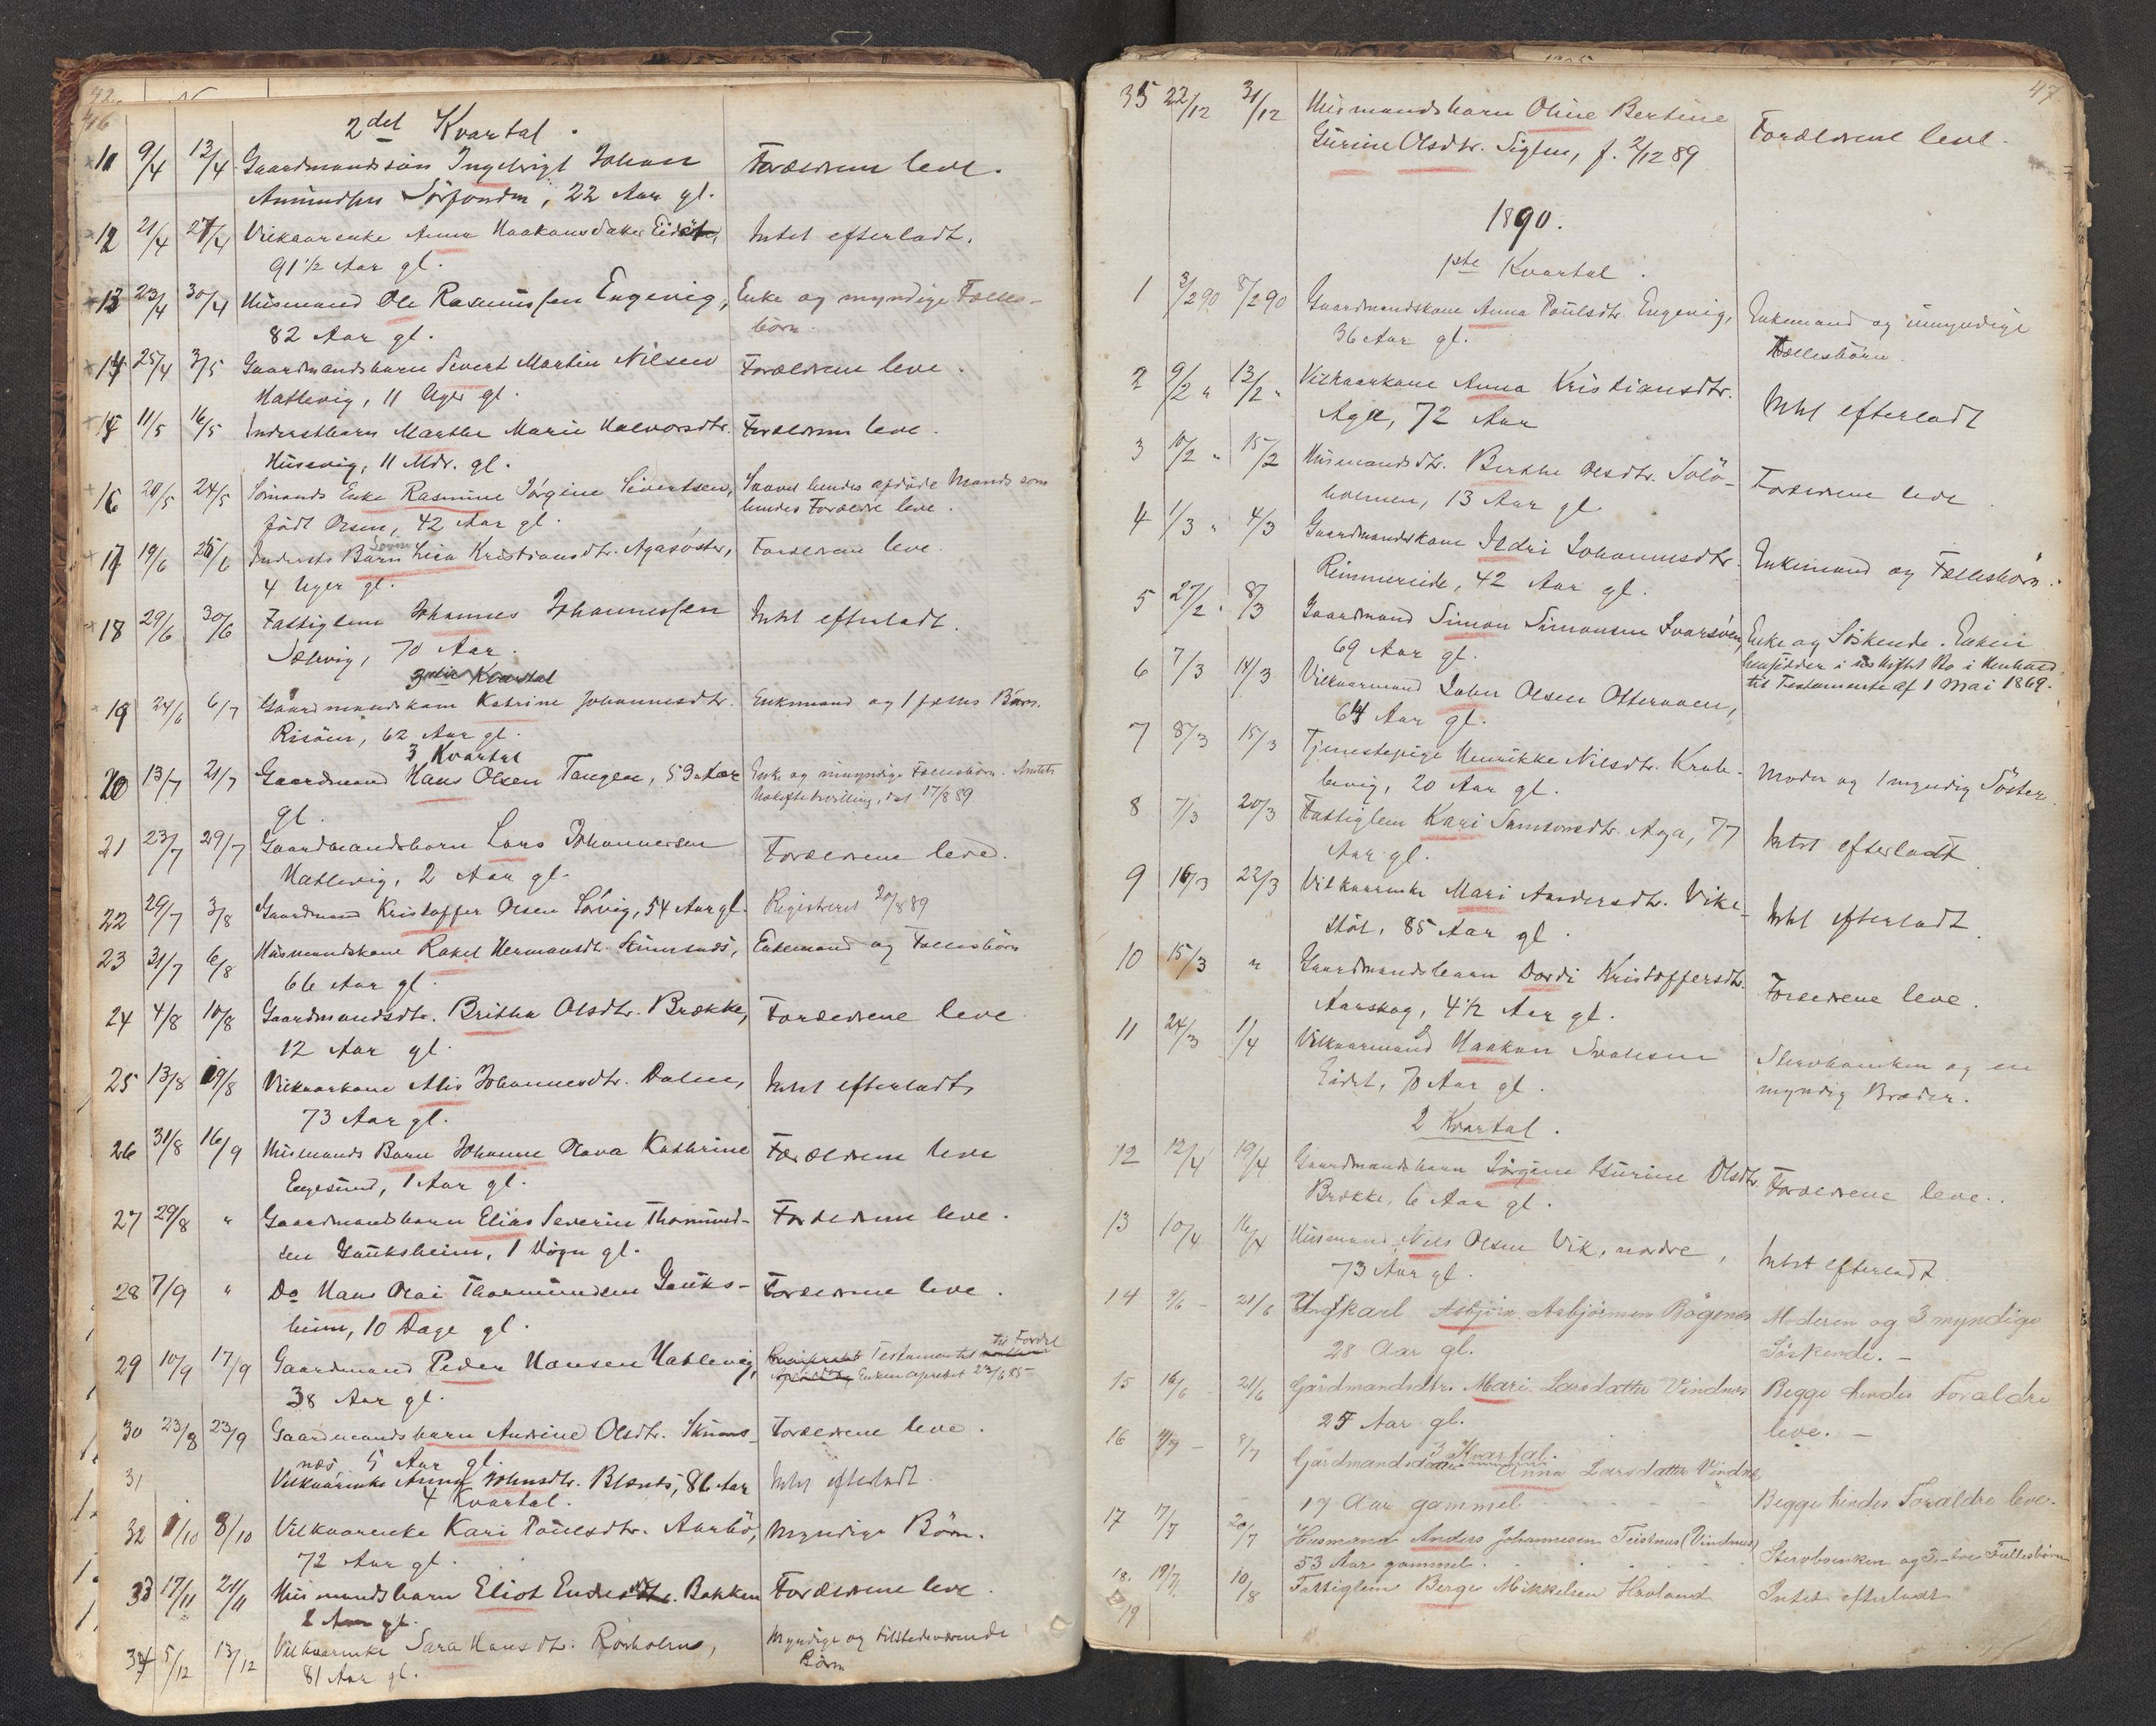 46
2det Kvartal.
11 9/4 12/4 Gaardmandssøn Ingebrigt Johan Forældrene leve.
Amundsen Sørfonden, 22 Aar gl.
12 21/4 27/4 Vilkaarenke Anna Haakonsdatter Intet efterladt.
91 1/2 Aar gl.
13 23/4 30/4 Husmand Ole Rasmussen Engevig, Enke og myndige Fælles-
82 Aar gl. børn.
14 25/4 3/5 Gaardmandsbarn Sivert Martin Nilsen Forældrene leve.
Hatlevig, 11 Uger gl.
15 11/5 16/5 Inderstbarn Marthe Marie Halvorsdtr. Forældrene leve.
Husevig, 11 Mdr. gl.
16 20/5 24/5 Sømands Enke Rasmine Jørgine Sivertsen, Saavel hendes afdøde Mands som
født Olsen, 42 Aar gl. hendes Forældre leve.
17 19/6 25/6 Indersts Barn Lisa Kristiansdtr. Agasøster, Forældrene leve.
4 Uger gl.
18 29/6 30/6 Fattiglem Johannes Johannessen Intet efterladt.
70 Aar.
3die Kvartal
19 24/6 6/7 Gaardmandskone Katrine Johannesdtr. Enkemand og 1 fælles Barn.
Risøen, 62 Aar gl.
3 Kvartal
20 13/7 21/7 Gaardmand Hans Olsen Tangen, 53 Aar Enke og umyndige Fællesbørn. Amtets
gl. Uskiftebevilling, dat 17/8 89
21 23/7 29/7 Gaardmandsbarn Lars Johannessen Forældrene leve.
Hatlevig, 2 Aar gl.
22 29/7 3/8 Gaardmand Kristoffer Olsen Sørvig, 54 Aar gl. Registreret 20/8 89
23 31/7 6/8 Husmandskone Rakel Hermansdtr. Skimsnæs, Enkemand og Fællesbørn
66 Aar gl.
24 4/8 10/8 Gaardmandsdtr. Britha Olsdtr. Brække, Forældrene leve
12 Aar gl.
25 13/8 19/8 Vilkaarkone Alis Johannesdtr. Dalen, Intet efterladt
73 Aar gl.
26 31/8 16/9 Husmands Barn Johanne Olava Kathrine Forældrene leve
Engesund, 1 Aar gl.
27 29/8 " Gaardmandsbarn Elias Severin Thormund- Forældrene leve.
sen Gauksheim, 1 Døgn gl.
28 7/9 " Do Hans Olai Thormundsen Gauks- Forældrene leve.
heim, 10 Dage gl.
29 10/9 17/9 Gaardmand Peder Hansen Hatlevig, Testamentet til Fordel
38 Aar gl. Enken oprettet 23/6 85
30 23/8 23/9 Gaardmandsbarn Andrine Olsdtr. Skims- Forældrene leve.
næs 5 Aar gl.
31 Vilkaarenke Anna Johnsdtr. 86 Aar Intet efterladt
4 Kvartal.
32 1/10 8/10 Vilkaarenke Kari Poulsdtr. Aarbø, Myndige Børn.
72 Aar gl.
33 17/11 21/11 Husmandsbarn Eliot Bakken Forældrene leve.
2 Aar gl.
34 5/12 13/12 Vilkaarenke Sara Hansdtr. Rørholmen, Myndige og tilstedeværende
81 Aar gl. Børn
47
35 22/12 31/12 Husmandsbarn Oline Bertine Forældrene leve.
Gurine Olsdtr. Siglen, f. 2/12 89
1890.
1ste Kvartal.
1 3/2 90 8/2 90 Gaardmandskone Anna Poulsdtr. Engevig, Enkemand og umyndige
36 Aar gl. Fællesbørn.
2 9/2 " 13/2 " Vilkaarkone Anna Kristiansdtr. Intet efterladt
Aga, 72 Aar
3 10/2 " 15/2 Husmandsdtr. Berthe Olsdtr. Solø- Forældrene leve
holmen, 13 Aar gl.
4 1/3 " 4/3 Gaardmandskone Ildri Johannesdtr. Enkemand og Fællesbørn.
Rimmereide, 42 Aar gl.
5 27/2 " 8/3 Gaardmand Simon Simonsen Svarsøen, Enke og Søskende. Enken
69 Aar gl. hensidder i uskiftet Bo i Henhold
til Testamente af 1 Mai 1869.
6 7/3 14/3 Vilkaarmand John Olsen Otteraaen,
64 Aar gl.
7 8/3 15/3 Tjenestepige Henrikke Nilsdtr. Krak- Moder og 1 myndig Søster.
levig, 20 Aar gl.
8 7/3 20/3 Fattiglem Kari Samsonsdtr. Aga, 77 Intet efterladt.
Aar gl.
9 16/3 22/3 Vilkaarenke Mari Andersdtr. Vike- Intet efterladt.
støl, 85 Aar gl.
10 15/3 " Gaardmandsbarn Dordi Kristoffersdtr. Forældrene leve.
Aarskog, 4 1/2 Aar gl.
11 24/3 1/4 Vilkaarmand Haakon Eidet, 70 Aar gl. Stervboenken og en
myndig Broder.
2 Kvartal.
12 12/4 19/4 Gaardmandsbarn Jørgine Gurine Olsdtr. Forældrene leve.
Brække, 6 Aar gl.
13 10/4 16/4 Husmand Nils Olsen Vik, nordre, Intet efterladt.
73 Aar gl.
14 9/6 - 21/6 Ungkarl Asbjørn Asbjørnsen Bøgenes Moderen og 3 myndige
28 Aar gl. Søskende. -
15 16/6 - 21/6 Gårdmandsdtr. Mari Larsdatter Vindnes Begge hendes Forældre
25 Aar gl. leve. -
3 Kvartal.
16 4/7 - 8/7 Gårdmandsdatter Anna Larsdatter Vindnes
17 Aar gammel Begge hendes Forældre leve.
17 17/7 20/7 Husmand Anders Johannesen Teistnes (Vindnes) Stervboenken og 3-tre Fællesbørn
53 Aar gammel.
18. 19/7 10/8 Fattiglem Berge Mikkelsen Hovland Intet efterladt
19